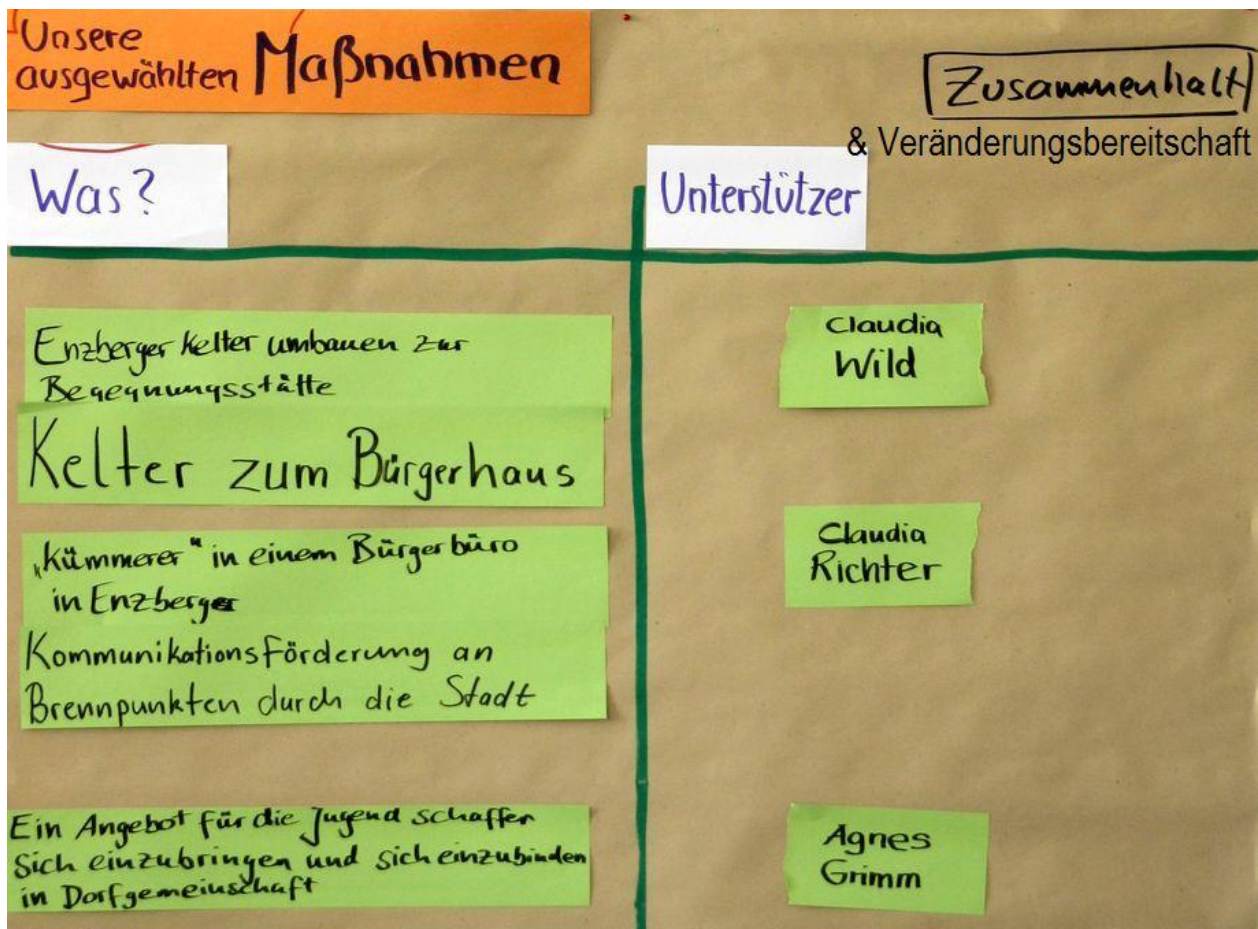 Unsere
ausgewählten Maßnahmen
Zusammenhalt
& Veränderungsbereitschaft
Was?
Unterstützer
Enzberger Kelter umbauen zur
Begegnungsstätte
Claudia
Wild
Kelter zum Bürgerhaus
„Kümmerer“ in einem Bürgerbüro
in Enzberg
Claudia
Richter
Kommunikationsförderung an
Brennpunkten durch die Stadt
Ein Angebot für die Jugend schaffen
sich einzubringen und sich einzubinden
in Dorfgemeinschaft
Agnes
Grimm